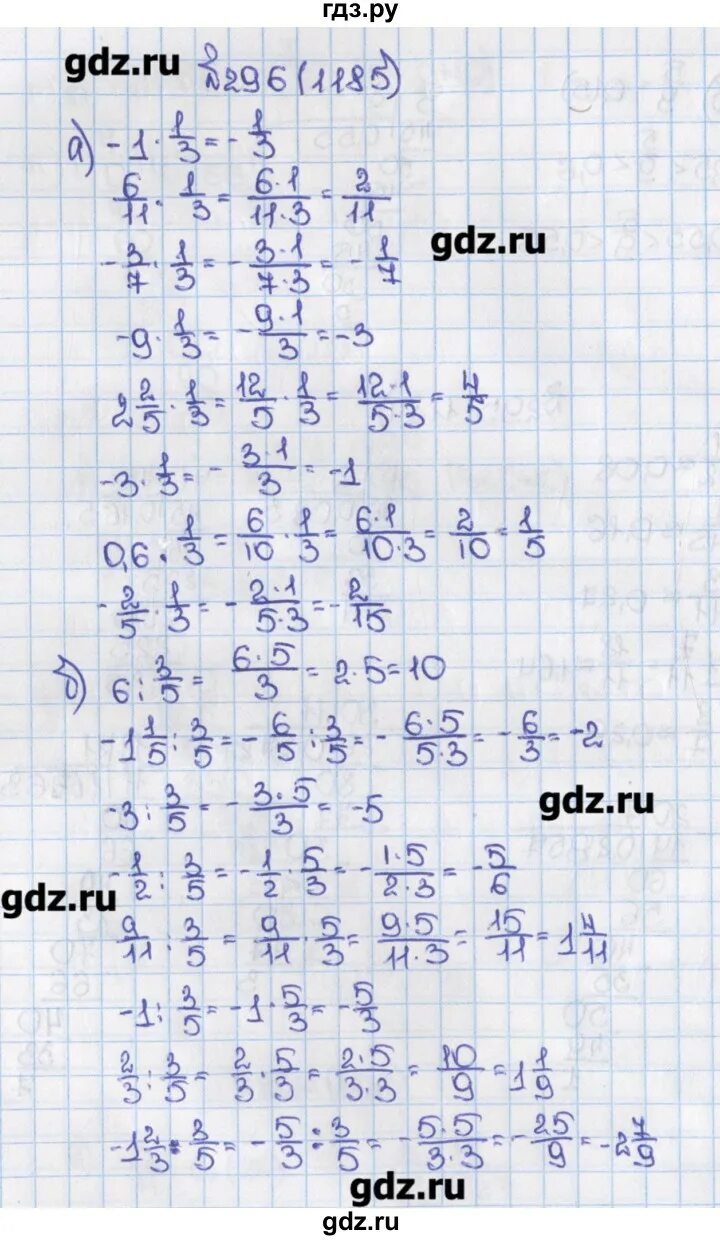 гдз.ру
gdz.ru
№296(1185)
а) -1 · 1/3 = -1/3
6/11 · 1/3 = 6·1/11·3 = 2/11
gdz.ru
-3/7 · 1/3 = -3·1/7·3 = -1/7
-9 · 1/3 = -9·1/3 = -3
2 2/5 · 1/3 = 12/5 · 1/3 = 12·1/5·3 = 4/5
-3 · 1/3 = -3·1/3 = -1
0,6 · 1/3 = 6/10 · 1/3 = 6·1/10·3 = 2/10 = 1/5
-2/5 · 1/3 = -2·1/5·3 = -2/15
б) 6 : 3/5 = 6·5/3 = 2·5 = 10
-1 1/5 : 3/5 = -6/5 : 3/5 = -6·5/5·3 = -6/3 = -2
-3 : 3/5 = -3·5/3 = -5
gdz.ru
-1/2 : 3/5 = -1/2 · 5/3 = -1·5/2·3 = -5/6
gdz.ru
9/11 : 3/5 = 9/11 · 5/3 = 9·5/11·3 = 15/11 = 1 4/11
-1 : 3/5 = -1 · 5/3 = -5/3
2/3 : 3/5 = 2/3 · 5/3 = 2·5/3·3 = 10/9 = 1 1/9
-1 2/3 : 3/5 = -5/3 : 3/5 = -5·5/3·3 = -25/9 = -2 7/9
gdz.ru
gdz.ru